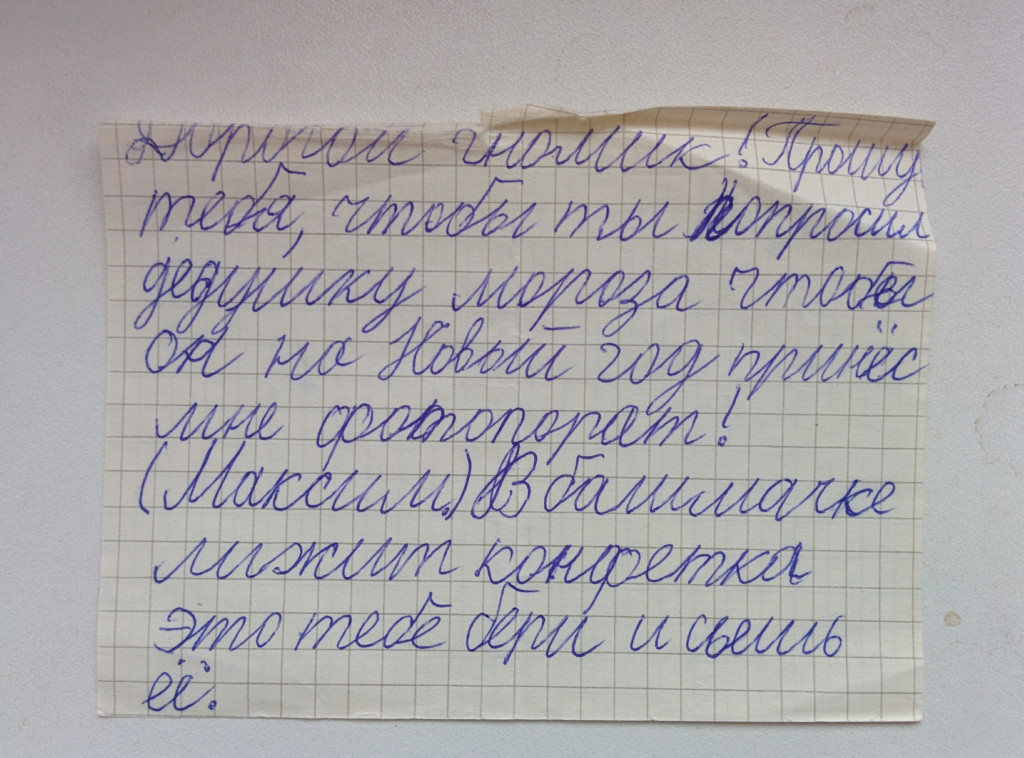 Дорогой гномик! Прошу
тебя, чтобы ты попросил
дедушку мороза чтобы
он на Новый год принёс
мне фотопорат!
(Максим.) В башмачке
лижит конфетка
это тебе бери и сьешь
её.